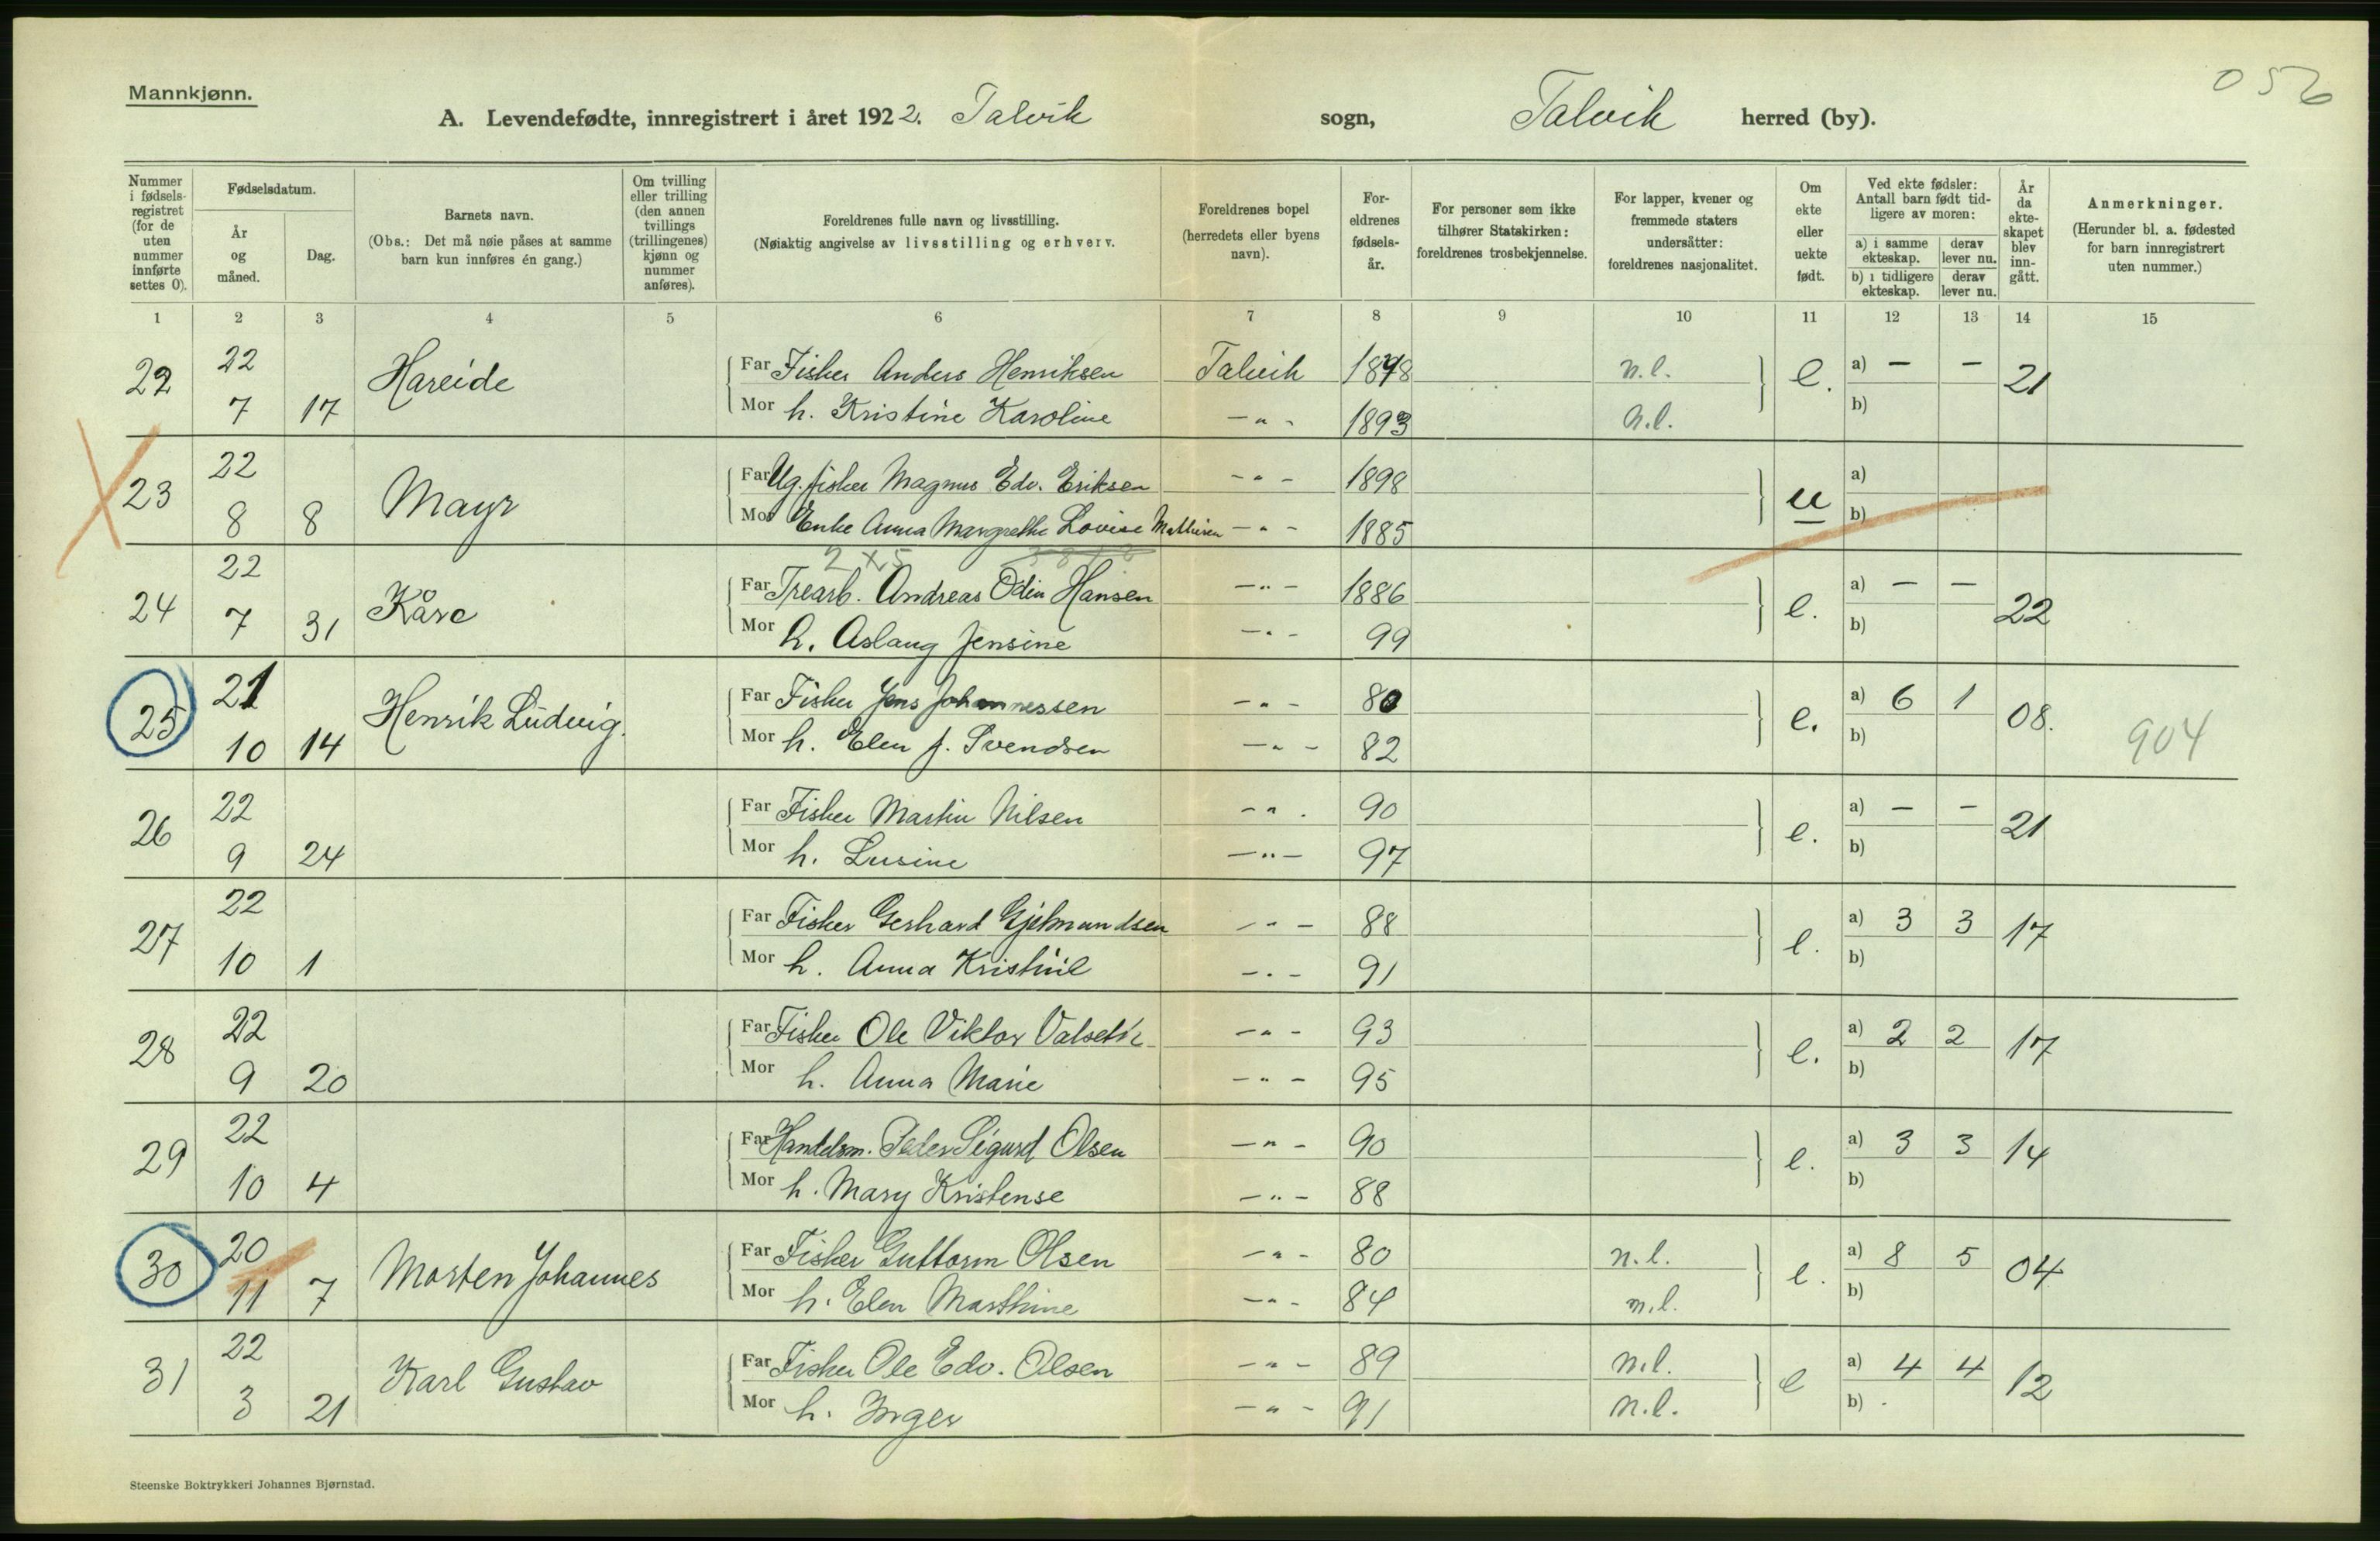 Mannkjønn.
056
A. Levendefødte, innregistrert i året 1922. Talvik sogn, Talvik herred (by).
Nummer i fødselsregistret (for de uten nummer innførte settes 0).
Fødselsdatum.
År og måned.
Dag.
Barnets navn.
(Obs.: Det må nøie påses at samme barn kun innføres én gang.)
Om tvilling eller trilling (den annen tvillings (trillingenes) kjønn og nummer anføres).
Foreldrenes fulle navn og livsstilling.
(Nøiaktig angivelse av livsstilling og erhverv.
Foreldrenes bopel (herredets eller byens navn).
Foreldrenes fødselsår.
For personer som ikke tilhører Statskirken: foreldrenes trosbekjennelse.
For lapper, kvener og fremmede staters undersåtter: foreldrenes nasjonalitet.
Om ekte eller uekte født.
Ved ekte fødsler: Antall barn født tidligere av moren:
a) i samme ekteskap. derav lever nu.
b) i tidligere ekteskap. derav lever nu.
År da ekteskapet blev inngått.
Anmerkninger.
(Herunder bl. a. fødested for barn innregistrert uten nummer.)
1 2 3 4 5 6 7 8 9 10 11 12 13 14 15
22 22 7 17 Hareide
Far Fisker Anders Henriksen Talvik 1898 n.l. e. a) — — 21
Mor h. Kristine Karoline —„— 1893 n.l. b)
23 22 8 8 Mayr
Far Ug. fisker Magnus Edv. Eriksen —„— 1898 u a)
Mor Enke Anna Margrethe Lovise Mathisen —„— 1885 b)
2 x 5
24 22 7 31 Kåre
Far Trearb. Andreas Odin Hansen —„— 1886 e. a) — — 22
Mor h. Aslaug Jensine —„— 99 b)
25 21 10 14 Henrik Ludvig.
Far Fisker Jens Johannessen —„— 80 e. a) 6 1 08. 904
Mor h. Elen J. Svendsen —„— 82 b)
26 22 9 24
Far Fisker Martin Nilsen —„— 90 e. a) — — 21
Mor h. Lusine —„— 97 b)
27 22 10 1
Far Fisker Gerhard Gjetmundsen —„— 88 e. a) 3 3 17
Mor h. Anna Kristine —„— 91 b)
28 22 9 20
Far Fisker Ole Viktor Valseth —„— 93 e. a) 2 2 17
Mor h. Anna Marie —„— 95 b)
29 22 10 4
Far Handelsm. Peder Sigurd Olsen —„— 90 e. a) 3 3 14
Mor h. Mary Kristense —„— 88 b)
30 20 11 7 Morten Johannes
Far Fisker Guttorm Olsen —„— 80 n.l. e. a) 8 5 04
Mor h. Elen Marthine —„— 84 n.l. b)
31 22 3 21 Karl Gustav
Far Fisker Ole Edv. Olsen —„— 89 n.l. e a) 4 4 12
Mor h. Inger —„— 91 n.l. b)
Steenske Boktrykkeri Johannes Bjørnstad.